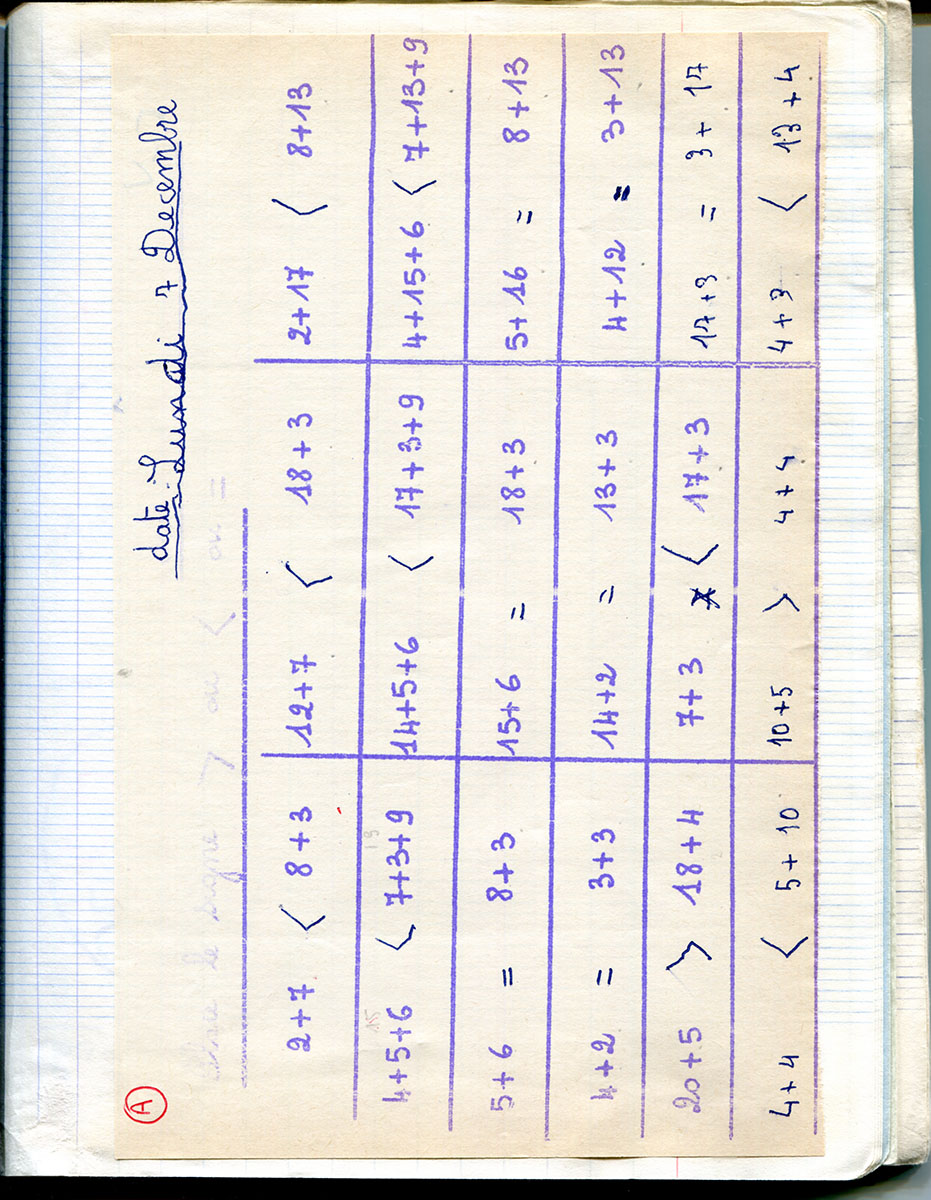 A
date : Lundi 7 Decembre
le signe > ou < ou =
2+7 < 8+3 12+7 < 18+3 2+17 < 8+13
15 19
4+5+6 < 7+3+9 14+5+6 < 17+3+9 4+15+6 < 7+13+9
5+6 = 8+3 15+6 = 18+3 5+16 = 8+13
4+2 = 3+3 14+2 = 13+3 4+12 = 3+13
20+5 > 18+4 7+3 < 17+3 17+3 = 3+17
4+4 < 5+10 10+5 > 4+4 4+3 < 13+4